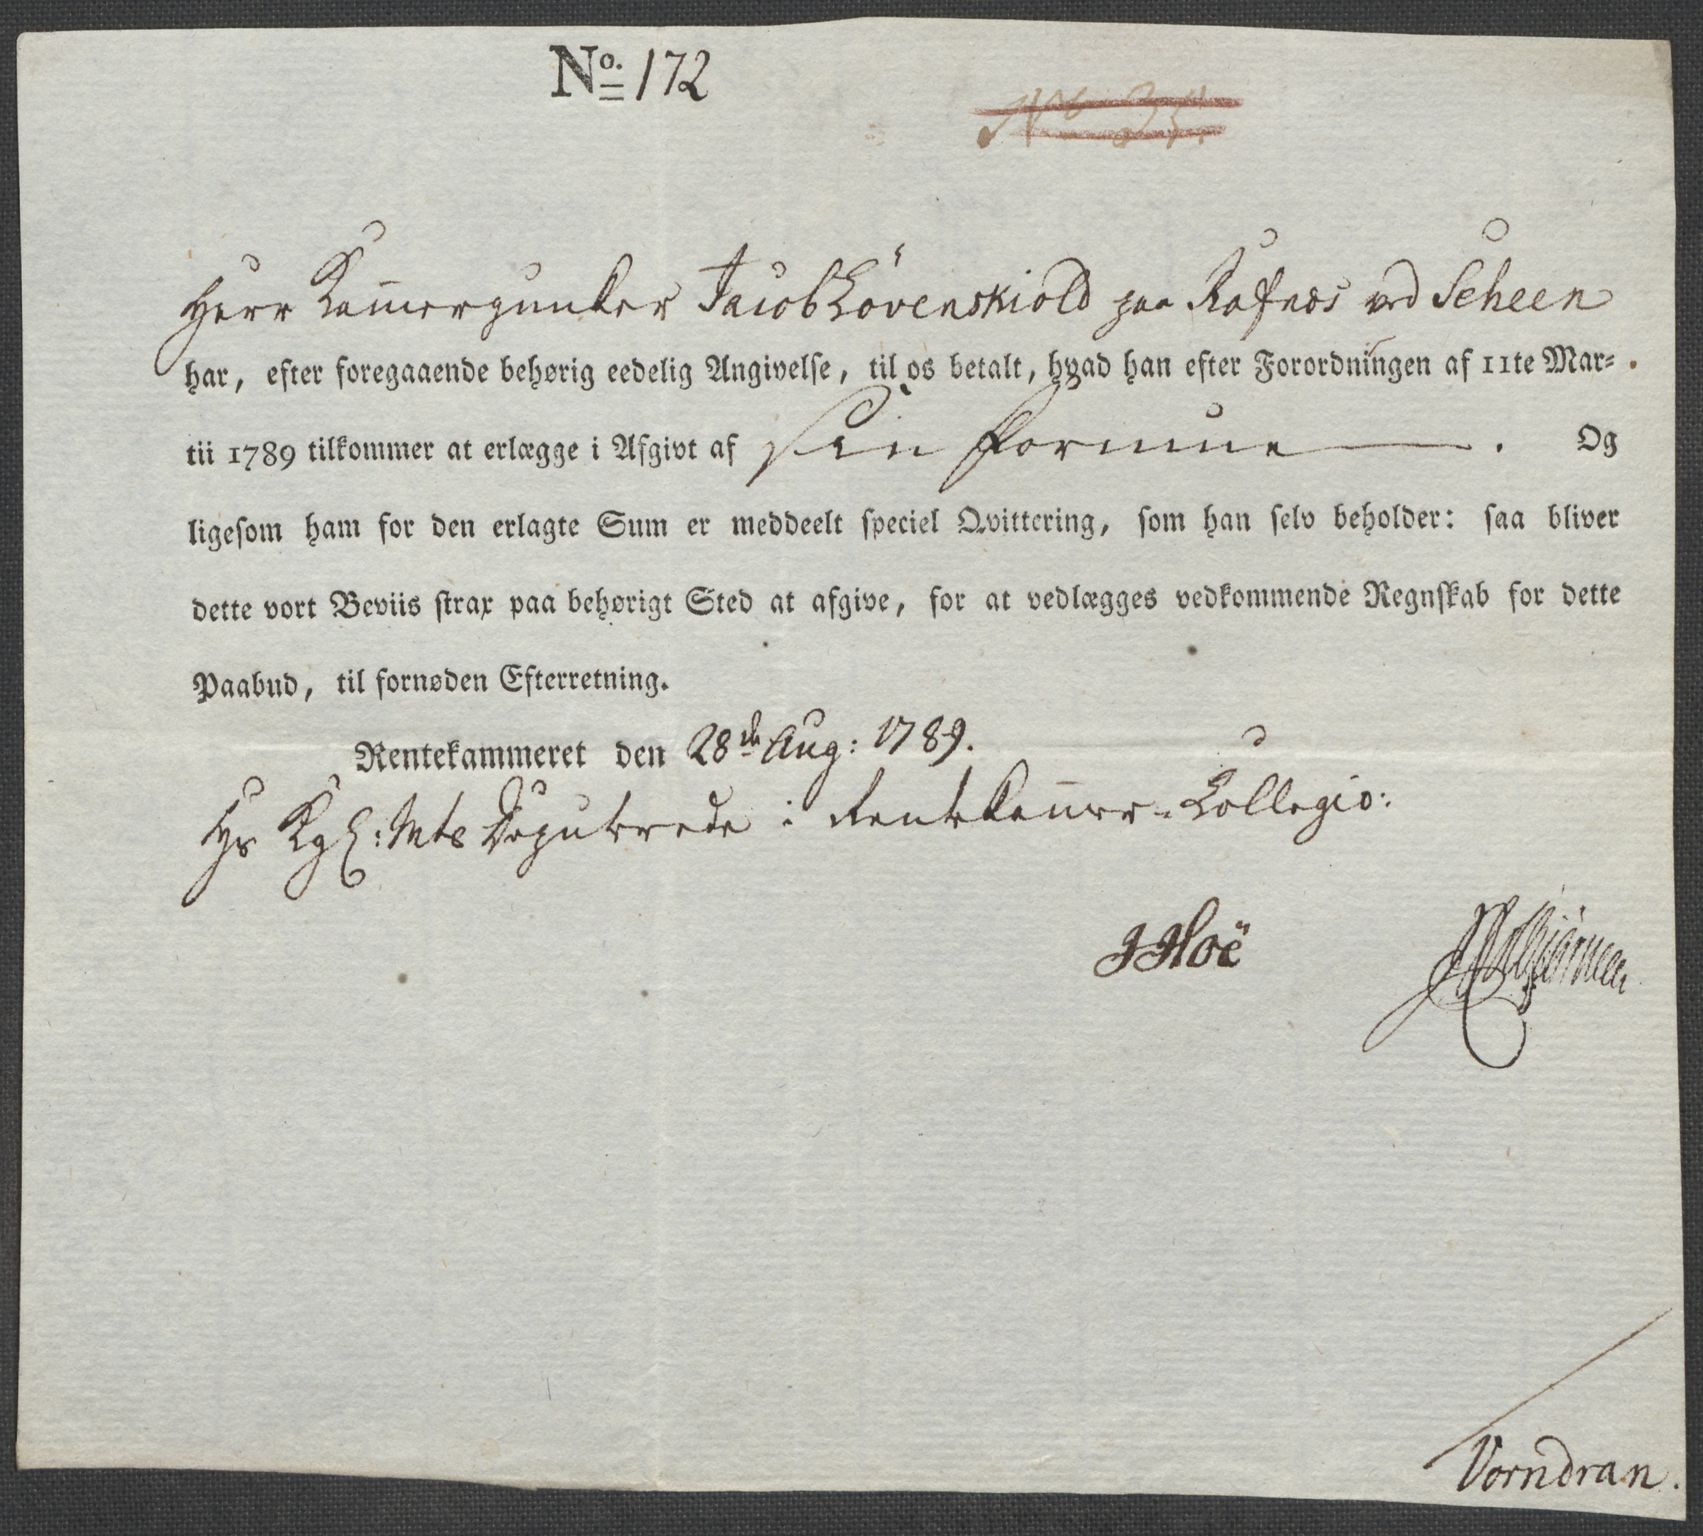 No. 172
No 35.
Herr Kammerjunker Jacob Løvenskiold paa Rafnæs ved Scheen
har, efter foregaaende behørig eedelig Angivelse, til os betalt, hvad han efter Forordningen af 11te Mar-
tii 1789 tilkommer at erlægge i Afgivt af sin Formue. Og
ligesom ham for den erlagte Sum er meddeelt speciel Qvittering, som han selv beholder: saa bliver
dette vort Beviis strax paa behørigt Sted at afgive, for at vedlægges vedkommende Regnskab for dette
Paabud, til fornøden Efterretning.
Rentekammeret den 28de Aug: 1789.
Hs Kgl: Mts Deputerede i Rentekammer-Collegio:
JHoë
Vorndran.